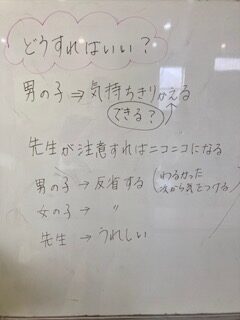 どうすればいい？
男の子⇒気持ちきりかえる
できる？
先生が注意すればニコニコになる
男の子→反省する(わるかった
次から気をつける)
女の子→〃
先生→うれしい